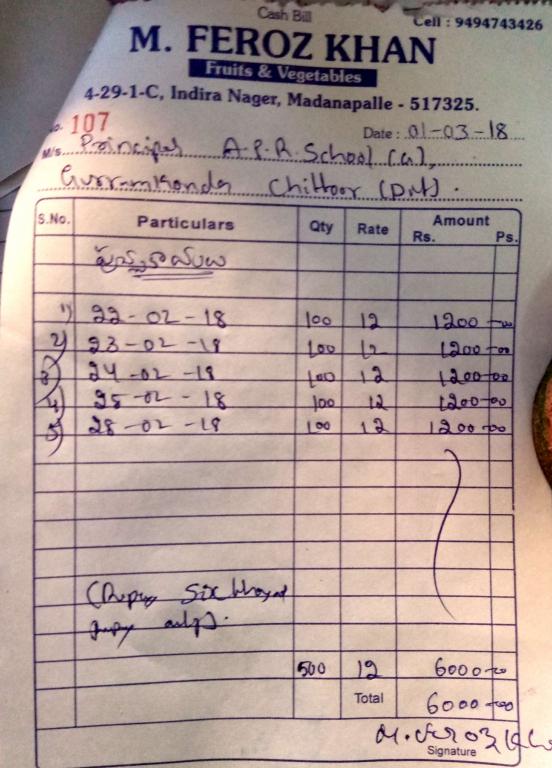 Cash Bill
Cell : 9494743426
M. FEROZ KHAN
Fruits & Vegetables
4-29-1-C, Indira Nager, Madanapalle - 517325.
No. 107
Date : 01-03-18
M/s. Principal A.P.R. School (G),
Gurramkonda Chittoor (Dt).
S.No. Particulars Qty Rate Amount
Rs. Ps.
1) 22-02-18 100 12 1200-00
2) 23-02-18 100 12 1200-00
3) 24-02-18 100 12 1200-00
4) 25-02-18 100 12 1200-00
5) 28-02-18 100 12 1200-00
(Rupees Six thousand
rupees only).
500 12 6000-00
Total 6000-00
M. Feroz Khan
Signature